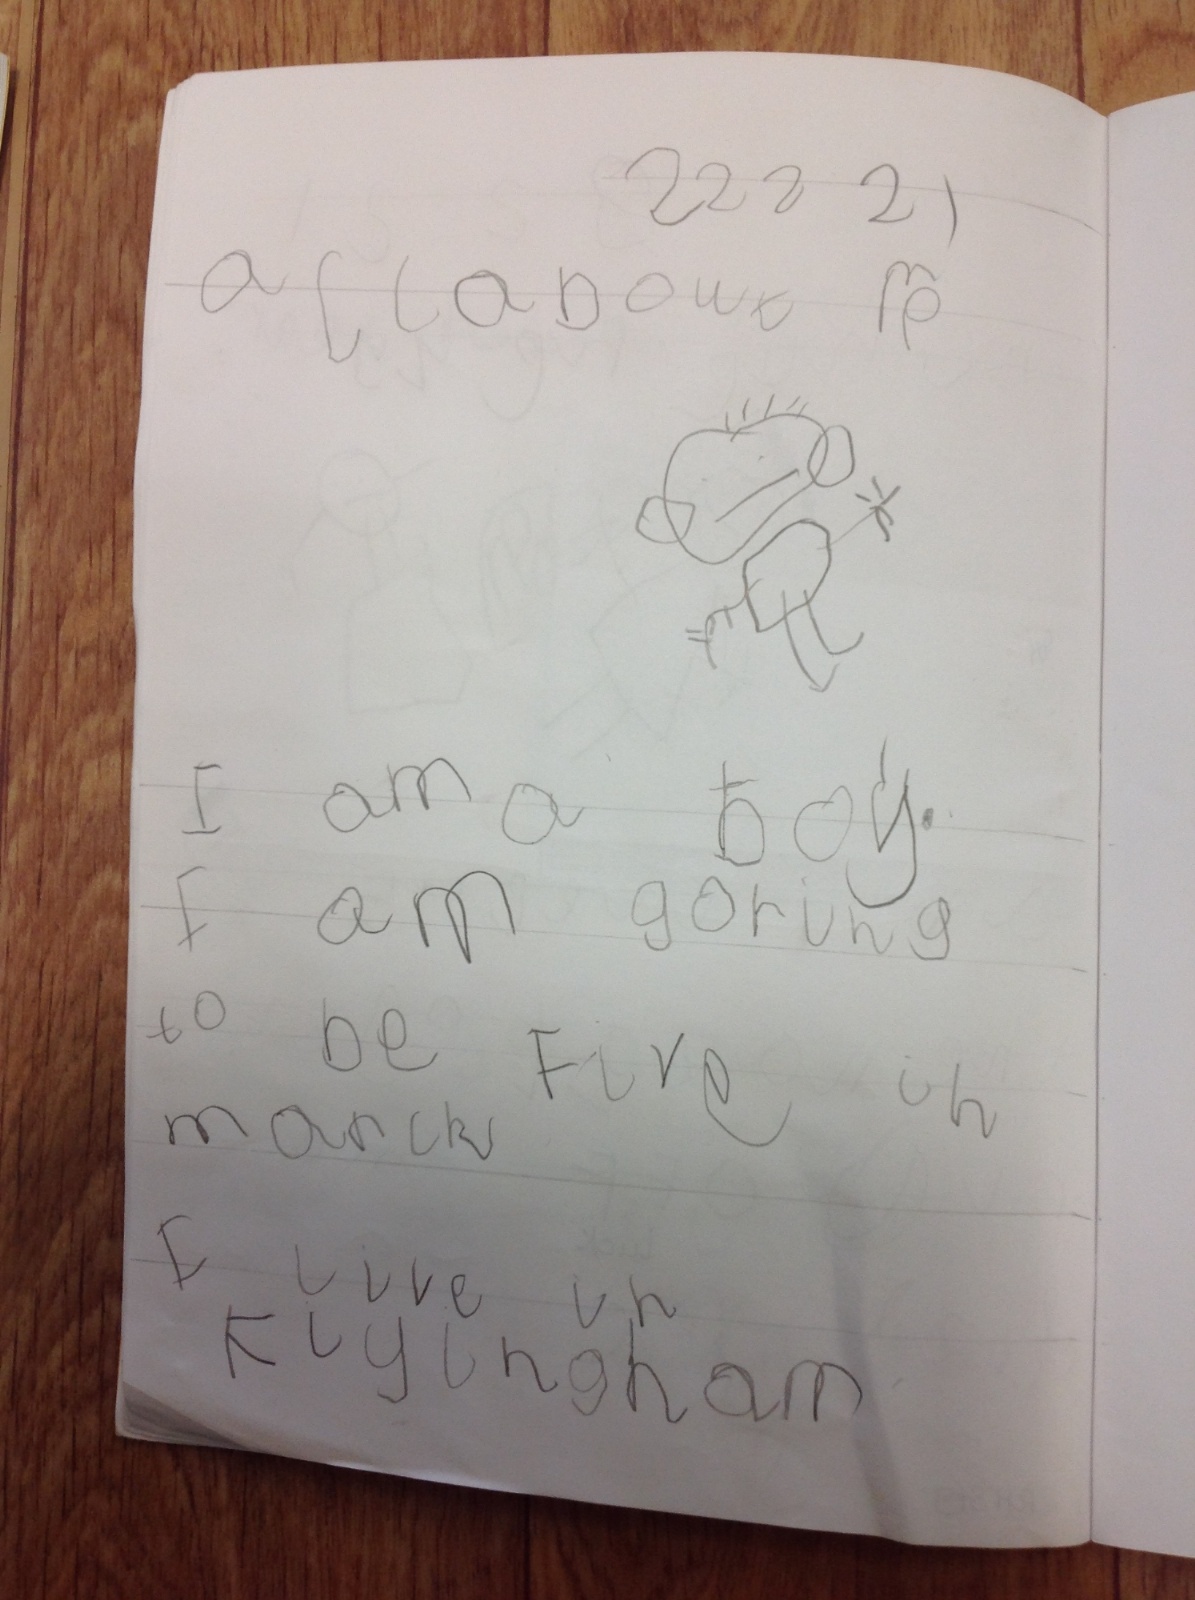 222 21
aflabout me
I am a boy.
I am goring
to be Five in
marck
I live in
Kiyingham